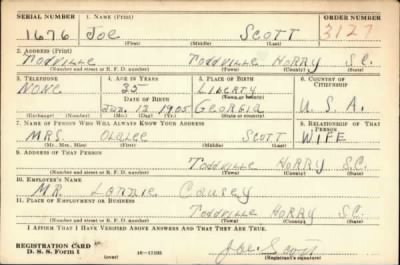 SERIAL NUMBER 1. NAME (Print) ORDER NUMBER
1676 JOE SCOTT 3127
(First) (Middle) (Last)
2. ADDRESS (Print)
TODDVILLE HORRY S.C.
(Number and street or R. F. D. number) (Town) (County) (State)
3. TELEPHONE 4. AGE IN YEARS 5. PLACE OF BIRTH 6. COUNTRY OF CITIZENSHIP
NONE 35 LIBERTY
DATE OF BIRTH (Town or county)
Jan. 12 1905 GEORGIA U.S.A.
(Exchange) (Number) (Mo.) (Day) (Yr.) (State or country)
7. NAME OF PERSON WHO WILL ALWAYS KNOW YOUR ADDRESS 8. RELATIONSHIP OF THAT PERSON
MRS. SCOTT WIFE
(Mr., Mrs., Miss) (First) (Middle) (Last)
9. ADDRESS OF THAT PERSON
TODDVILLE HORRY S.C.
(Number and street or R. F. D. number) (Town) (County) (State)
10. EMPLOYER'S NAME
MR. LONNIE CAUSEY
11. PLACE OF EMPLOYMENT OR BUSINESS
TODDVILLE HORRY S.C.
(Number and street or R. F. D. number) (Town) (County) (State)
I AFFIRM THAT I HAVE VERIFIED ABOVE ANSWERS AND THAT THEY ARE TRUE.
REGISTRATION CARD Joe Scott
D. S. S. Form 1 (over) (Registrant's signature)